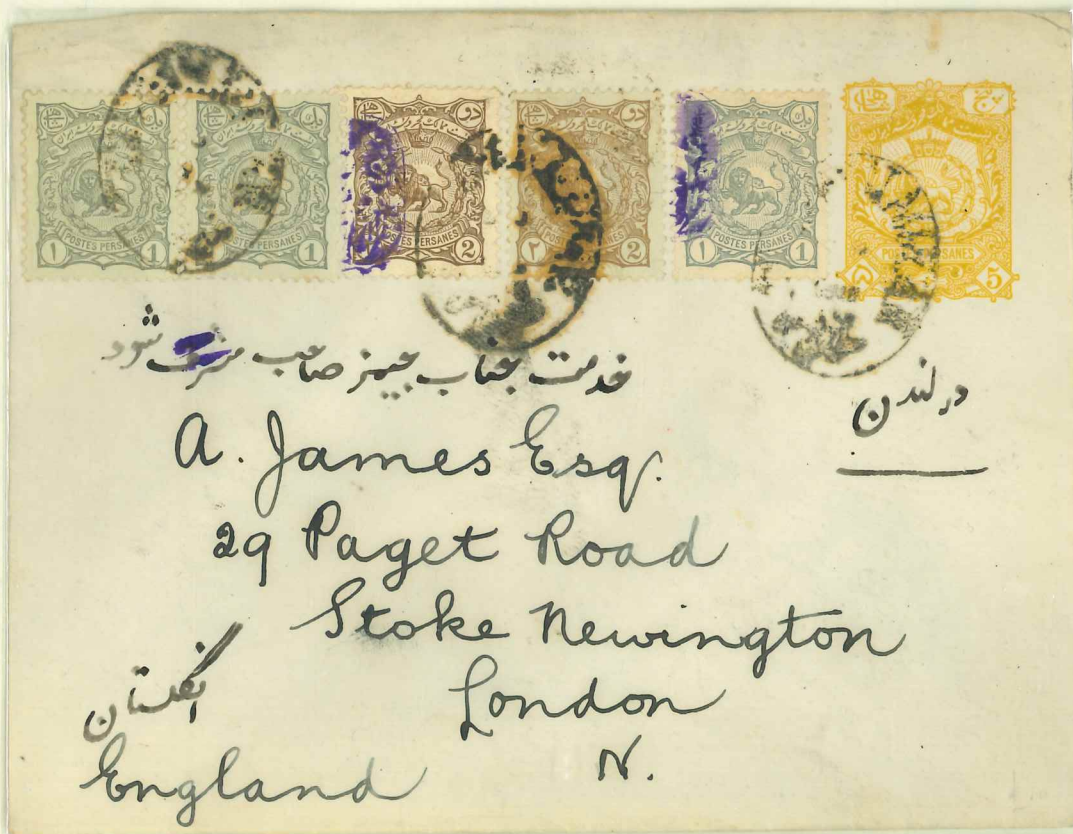 POSTES PERSANES
۱ 1
POSTES PERSANES
1
POSTES PERSANES
2
POSTES PERSANES
۲ 2
POSTES PERSANES
۱ 1
POSTES PERSANES
۵ 5
خدمت جناب جیمز صاحب مشرف شود
در لندن
A. James Esq.
29 Paget Road
Stoke Newington
London
N.
انگلستان
England